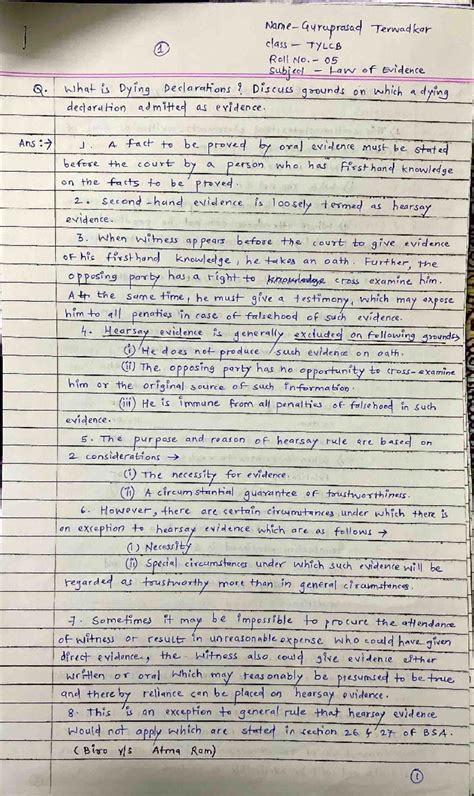 Name - Guruprasad Terwadkar
1
class - TYLLB
Roll No. - 05
Subject - Law of Evidence
Q. What is Dying Declarations? Discuss grounds on which a dying
declaration admitted as evidence.
Ans :→ 1. A fact to be proved by oral evidence must be stated
before the court by a person who has firsthand knowledge
on the facts to be proved.
2. Second-hand evidence is loosely termed as hearsay
evidence.
3. When witness appears before the court to give evidence
of his firsthand knowledge, he takes an oath. Further, the
opposing party has a right to knowledge cross examine him.
At the same time, he must give a testimony, which may expose
him to all penalties in case of falsehood of such evidence.
4. Hearsay evidence is generally excluded on following grounds
(i) He does not produce such evidence on oath.
(ii) The opposing party has no opportunity to cross-examine
him or the original source of such information.
(iii) He is immune from all penalties of falsehood in such
evidence.
5. The purpose and reason of hearsay rule are based on
2 considerations →
(i) The necessity for evidence.
(ii) A circumstantial guarantee of trustworthiness.
6. However, there are certain circumstances under which there is
an exception to hearsay evidence which are as follows →
(i) Necessity
(ii) Special circumstances under which such evidence will be
regarded as trustworthy more than in general circumstances.
7. Sometimes it may be impossible to procure the attendance
of witness or result in unreasonable expense who could have given
direct evidence, the witness also could give evidence either
written or oral which may reasonably be presumed to be true
and thereby reliance can be placed on hearsay evidence.
8. This is an exception to general rule that hearsay evidence
would not apply which are stated in section 26 & 27 of BSA.
(Biro v/s Atma Ram)
1